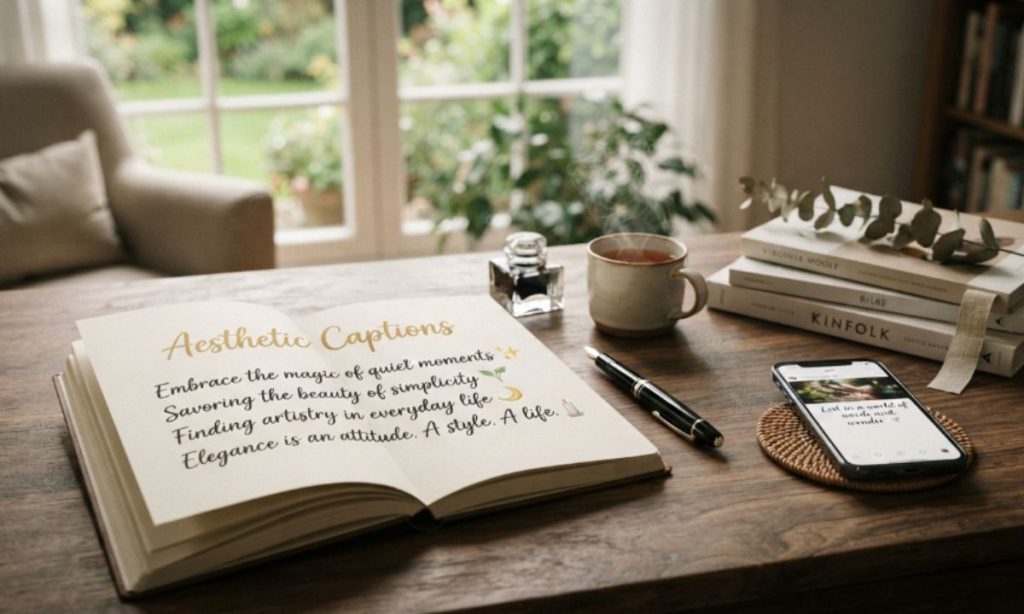 Aesthetic Captions
Embrace the magic of quiet moments ✨
Savoring the beauty of simplicity 🌱
Finding artistry in everyday life 🌙
Elegance is an attitude. A style. A life. 🕯️
VIRGINIA WOOLF
KINFOLK
Lost in a world of
words and
wonder